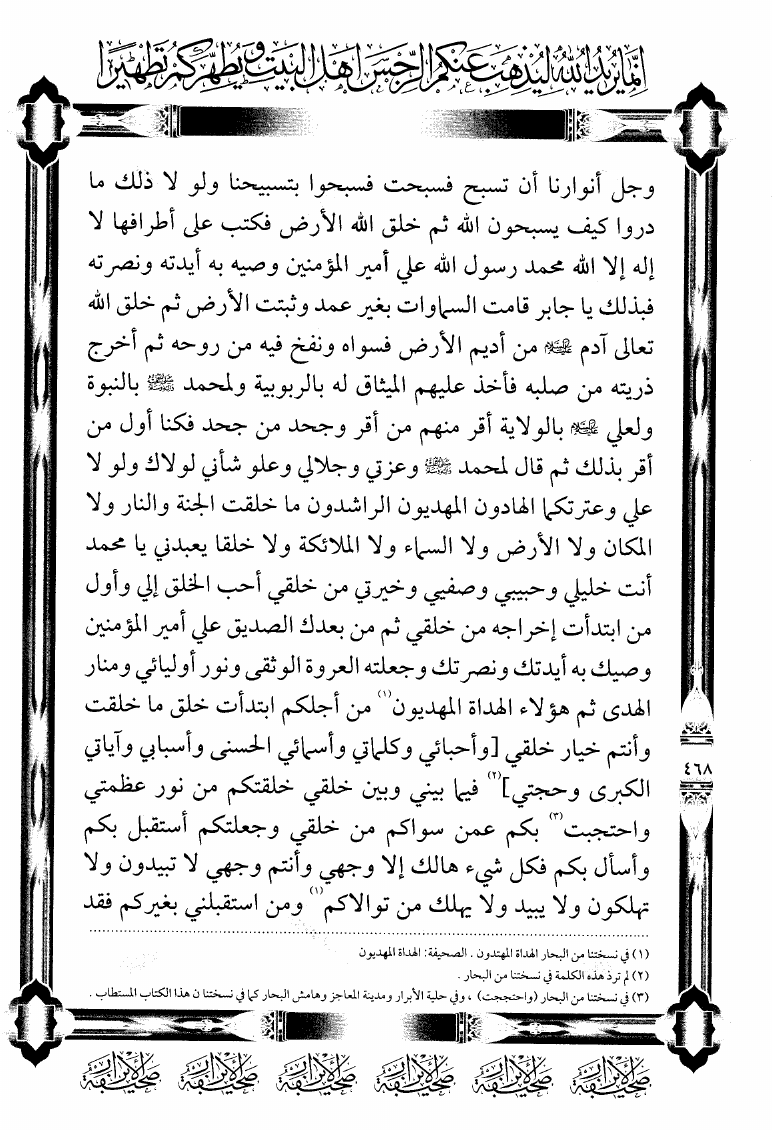 إنما يريد الله ليذهب عنكم الرجس أهل البيت ويطهركم تطهيرا
وجل أنوارنا أن تسبح فسبحت فسبحوا بتسبيحنا ولو لا ذلك ما
دروا كيف يسبحون الله ثم خلق الله الأرض فكتب على أطرافها لا
إله إلا الله محمد رسول الله علي أمير المؤمنين وصيه به أيدته ونصرته
فبذلك يا جابر قامت السماوات بغير عمد وثبتت الأرض ثم خلق الله
تعالى آدم عليه السلام من أديم الأرض فسواه ونفخ فيه من روحه ثم أخرج
ذريته من صلبه فأخذ عليهم الميثاق له بالربوبية ولمحمد ﷺ بالنبوة
ولعلي عليه السلام بالولاية أقر منهم من أقر وجحد من جحد فكنا أول من
أقر بذلك ثم قال لمحمد ﷺ وعزتي وجلالي وعلو شأني لولاك ولو لا
علي وعترتكما الهادون المهديون الراشدون ما خلقت الجنة والنار ولا
المكان ولا الأرض ولا السماء ولا الملائكة ولا خلقا يعبدني يا محمد
أنت خليلي وحبيبي وصفيي وخيرتي من خلقي أحب الخلق إلي وأول
من ابتدأت إخراجه من خلقي ثم من بعدك الصديق علي أمير المؤمنين
وصيك به أيدتك ونصرتك وجعلته العروة الوثقى ونور أوليائي ومنار
الهدى ثم هؤلاء الهداة المهديون(١) من أجلكم ابتدأت خلق ما خلقت
وأنتم خيار خلقي [وأحبائي وكلماتي وأسمائي الحسنى وأسبابي وآياتي
الكبرى وحجتي](٢) فيما بيني وبين خلقي خلقتكم من نور عظمتي
واحتجبت(٣) بكم عمن سواكم من خلقي وجعلتكم أستقبل بكم
وأسأل بكم فكل شيء هالك إلا وجهي وأنتم وجهي لا تبيدون ولا
تهلكون ولا يبيد ولا يهلك من توالاكم(١) ومن استقبلني بغيركم فقد
(١) في نسختنا من البحار الهداة المهتدون . الصحيفة: الهداة المهديون
(٢) لم ترد هذه الكلمة في نسختنا من البحار .
(٣) في نسختنا من البحار (واحتججت) ، وفي حلية الأبرار ومدينة المعاجز وهامش البحار كما في نسختنا ن هذا الكتاب المستطاب .
٤٦٨
صحيفة الأبرار صحيفة الأبرار صحيفة الأبرار صحيفة الأبرار صحيفة الأبرار صحيفة الأبرار